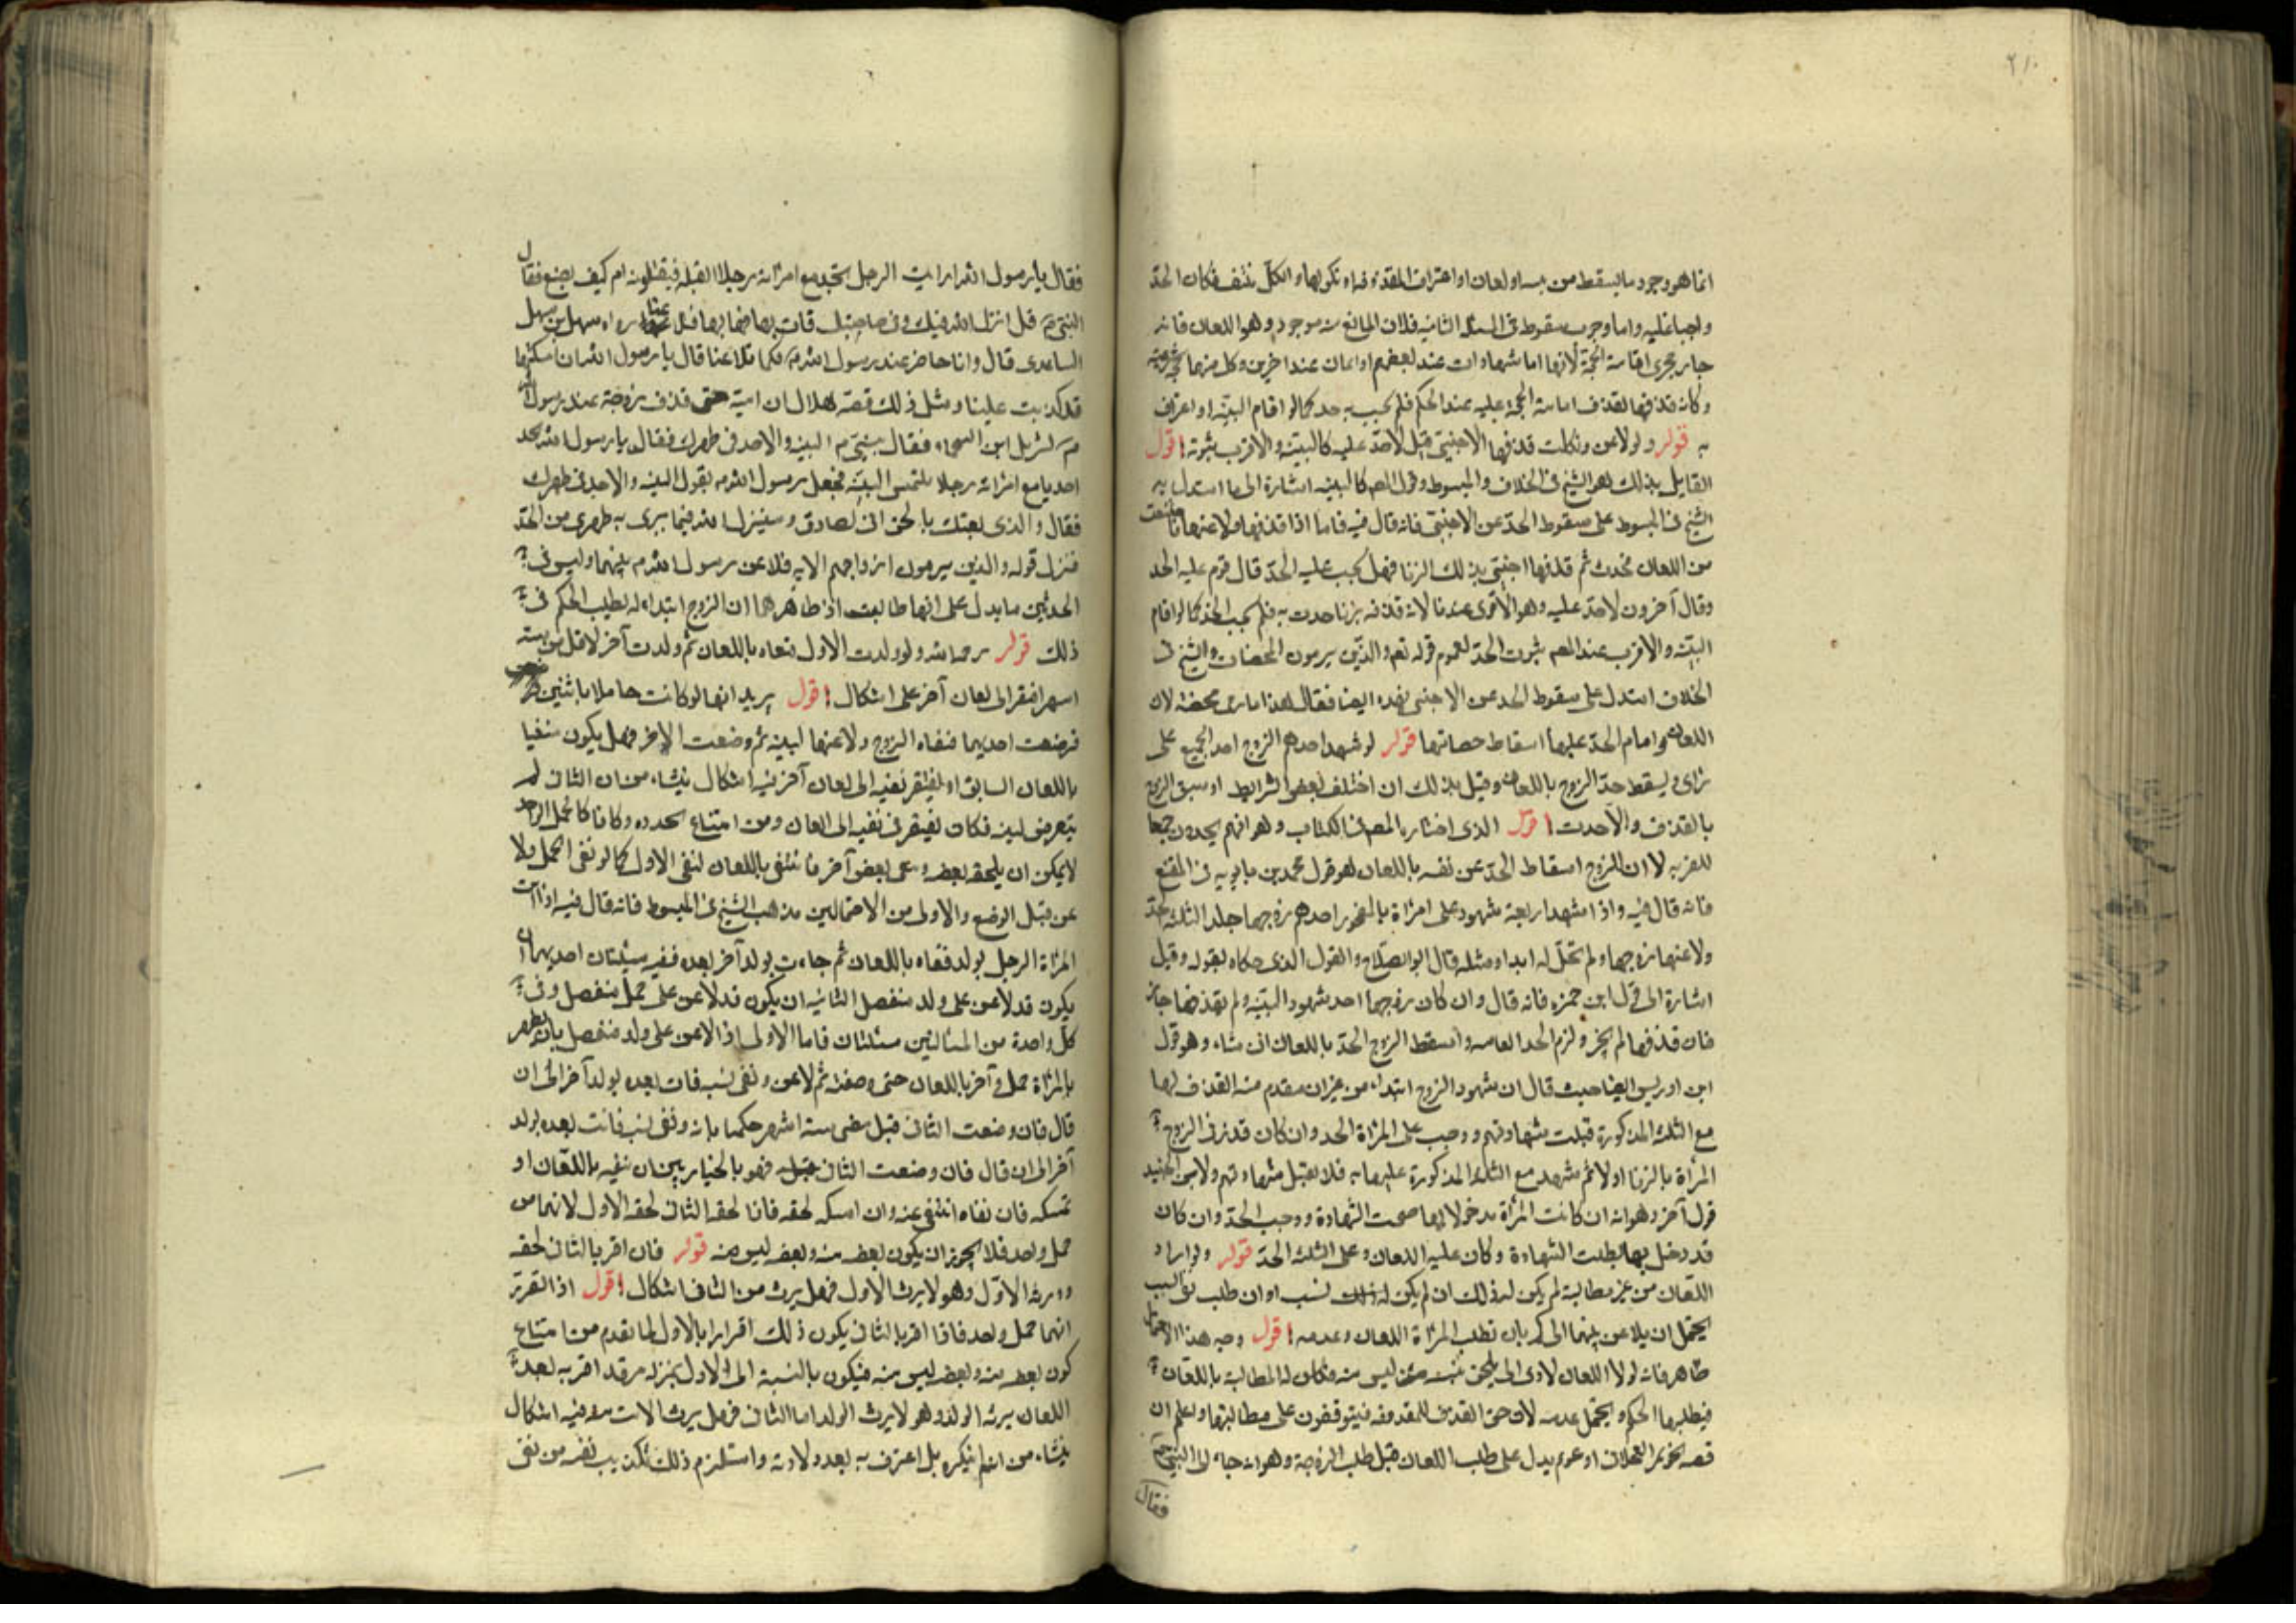 ٢١٠
انما هو وجود ما يسقط من بينه او لعان او اعتراف المقذوفه او نكولها والكل منتف فكان الحد
واجبا عليه واما وجوب سقوط في المسئله الثانيه فلان المانع منه موجود وهو اللعان فانه
جار مجرى اقامة الحجة لانها اما شهادات عند بعضهم او ايمان عند اخرين وكل منهما حجة شرعية
وكانه قذفها لقذف اقامة الحجة عليه عند الحكم فلم يجب به حد كما لو اقام البينه او اعترف
به قوله ولو لاعن ونكلت قذفها الاجنبي قيل لا حد عليه كالبينه والاقرب ثبوته اقول
القايل بذلك هو الشيخ في الخلاف والمبسوط وقول المص كالبينه اشارة الى ما استدل به
الشيخ في المبسوط على سقوط الحد عن الاجنبي فانه قال فيه فاما اذا قذفها ولاعنها فامتنعت
من اللعان فحدت ثم قذفها اجنبي بذلك الزنا فهل يجب عليه الحد قال قوم عليه الحد
وقال آخرون لا حد عليه وهو الاقوى عندنا لانه قذفه بزنا حدت به فلم يجب الحد كما لو اقام
البينه والاقرب عند المص ثبوت الحد لعموم قوله تعم والذين يرمون المحصنات والشيخ في
الخلاف استدل على سقوط الحد عن الاجنبي بهذه ايضا فقال لهذا ما رى محصنة لان
اللعان واقام الحد عليها اسقاط حصانتها قوله لو شهد احدهم الزوج احد الجميع على
راى ويسقط حد الزوج باللعان وقيل بذلك ان اختلف بعض الشرايط او سبق الزوج
بالقذف والا حدت اقول الذى اختاره المص في الكتاب وهو انهم يحدون جميعا
للفريه لا ان للزوج اسقاط الحد عن نفسه باللعان هو قول محمد بن بابويه في المقنع
فانه قال فيه واذا شهد اربعة شهود على امراة بالفجور احدهم زوجها جلد الثلثه الحد
ولاعنها زوجها ولم تحل له ابدا ومثله قال ابو الصلاح والقول الذى حكاه بقوله وقيل
اشارة الى قول ابن حمزه فانه قال وان كان زوجها احد شهود البينه ولم يقذفها جاز
فان قذفها لم يجز ولزم الحد العامه واسقط الزوج الحد باللعان ان شاء وهو قول
ابن ادريس ايضا حيث قال ان شهود الزوج ابتداء من غير ان مقدم منه القذف لها
مع الثلثه المذكورة قبلت شهادتهم ووجب على المراة الحد وان كان قد رمى الزوج
المراة بالزنا اولا ثم شهد مع الثلثه المذكورة عليها به فلا يقبل شهادتهم ولابن الجنيد
قول آخر وهو انه ان كانت المراة مدخولا بها صحت الشهادة ووجب الحد وان كان
قد دخل بها بطلت الشهادة وكان عليه اللعان وعلى الثلثه الحد قوله ولو اراد
اللعان من غير مطالبة لم يكن له ذلك ان لم يكن له ذلك نسب او ان طلب نفي النسب
يحتمل ان يلاعن بينهما الحاكم بان تطلب المراة اللعان وعدمه اقول وجه هذا الاحتمال
ظاهر فانه لولا اللعان لادى الى يلحق نسبه من ليس منه فكان له المطالبة باللعان
فيطلبها الحكم ويحتمل عدمه لان حق القذف للمقذوفه فيتوقفون على مطالبتها واعلم ان
قصه عويمر العجلانى او عويم يدل على طلب اللعان قبل طلب الزوجة وهو انه جاء الى النبي م
فقال
فقال يا رسول الله ارايت الرجل يجد مع امراته رجلا ايقتله فيقتلونه ام كيف يصنع فقال
النبي م قد انزل الله فيك وفي صاحبتك فات بها فجا بها فتلاعنا رواه سهل بن سهل
الساعدى قال وانا حاضر عند رسول الله م فكما تلاعنا قال يا رسول الله ان امسكتها
قد كذبت عليها ومثل ذلك قصة هلال ان امية حتى قذف زوجته عند رسول الله
م لشريك ابن السحماء فقال بنبي م البينه والا حد في ظهرك فقال يا رسول الله يجد
احدنا مع امراته رجلا يلتمس البينه فجعل رسول الله م يقول البينه والا حد في ظهرك
فقال والذى بعثك بالحق انى لصادق وسينزل الله فيما يبرى به ظهرى من الحد
فنزل قوله والذين يرمون ازواجهم الايه فلاعن رسول الله م بينهما وليس في
الحديثين ما يدل على انها طالبت اذ ظاهرهما ان الزوج ابتداء له يطلب الحكم في
ذلك قوله رحمه الله ولو ولدت الاول فنفاه باللعان ثم ولدت آخر لاقل من سته
اسهر افتقر الى لعان آخر على اشكال اقول يريد انها لو كانت حاملا باثنين
فوضعت احديهما فنفاه الزوج ولاعنها لبينه ثم وضعت الاخر فهل يكون منفيا
باللعان السابق او يفتقر نفيه الى لعان آخر فيه اشكال ينشاء من ان الثانى لم
يتعرض لنفيه فكان يفتقر في نفيه الى لعان ومن امتناع تحدده وكانا كالحمل الواحد
لا يمكن ان يلحقه بعضه دون بعض آخر فانتفى باللعان لنفى الاول كما لو نفى الحمل ولا
عن قبل الوضع والاولى من الاحتمالين مذهب الشيخ في المبسوط فانه قال فيه اذا اتت
المراة الرجل بولد فنفاه باللعان ثم جاءت بولد آخر بعده ففيه مسئلتان احديهما ان
يكون قد لاعن على ولد منفصل الثانيه ان يكون قد لاعن على حمل منفصل وفي
كل واحدة من المسئلتين مسئلتان فاما الاولى اذا لاعن على ولد منفصل بان ظهر
بالمراة حمل وآخر باللعان حتى وضعته ثم لاعن ونفى نسبه فاتت بعده بولد آخر الى ان
قال فان وضعت الثانى قبل مضى ستة اشهر حكمنا بانه ونفى نسبه فانت بعده بولد
آخر الى ان قال فان وضعت الثانى قبله فهو بالخيار بين ان ينفيه باللعان او
تمسكه فان نفاه انتفى عنه وان امسكه لحقه فاذا لحقه الثانى لحقه الاول لانهما من
حمل واحد فلا يجوز ان يكون بعضه منه وبعضه ليس منه قوله فان اقر بالثانى لحقه
وورثه الاول وهو لا يرث الاول فهل يرث من الثانى اشكال اقول اذا تقرر
انهما حمل واحد فاذا اقر بالثانى يكون ذلك اقرارا بالاول لما تقدم من امتناع
كون بعضه منه وبعضه ليس منه فيكون بالنسبة الى الاول بمنزله من قد اقر به بعد
اللعان يرثه الولد وهو لا يرث الولد اما الثانى فهل يرث الاب منه فيه اشكال
ينشاء من انه لم ينكره بل اعترف به بعد ولادته واستلزم ذلك تكذيب نفسه من نفى